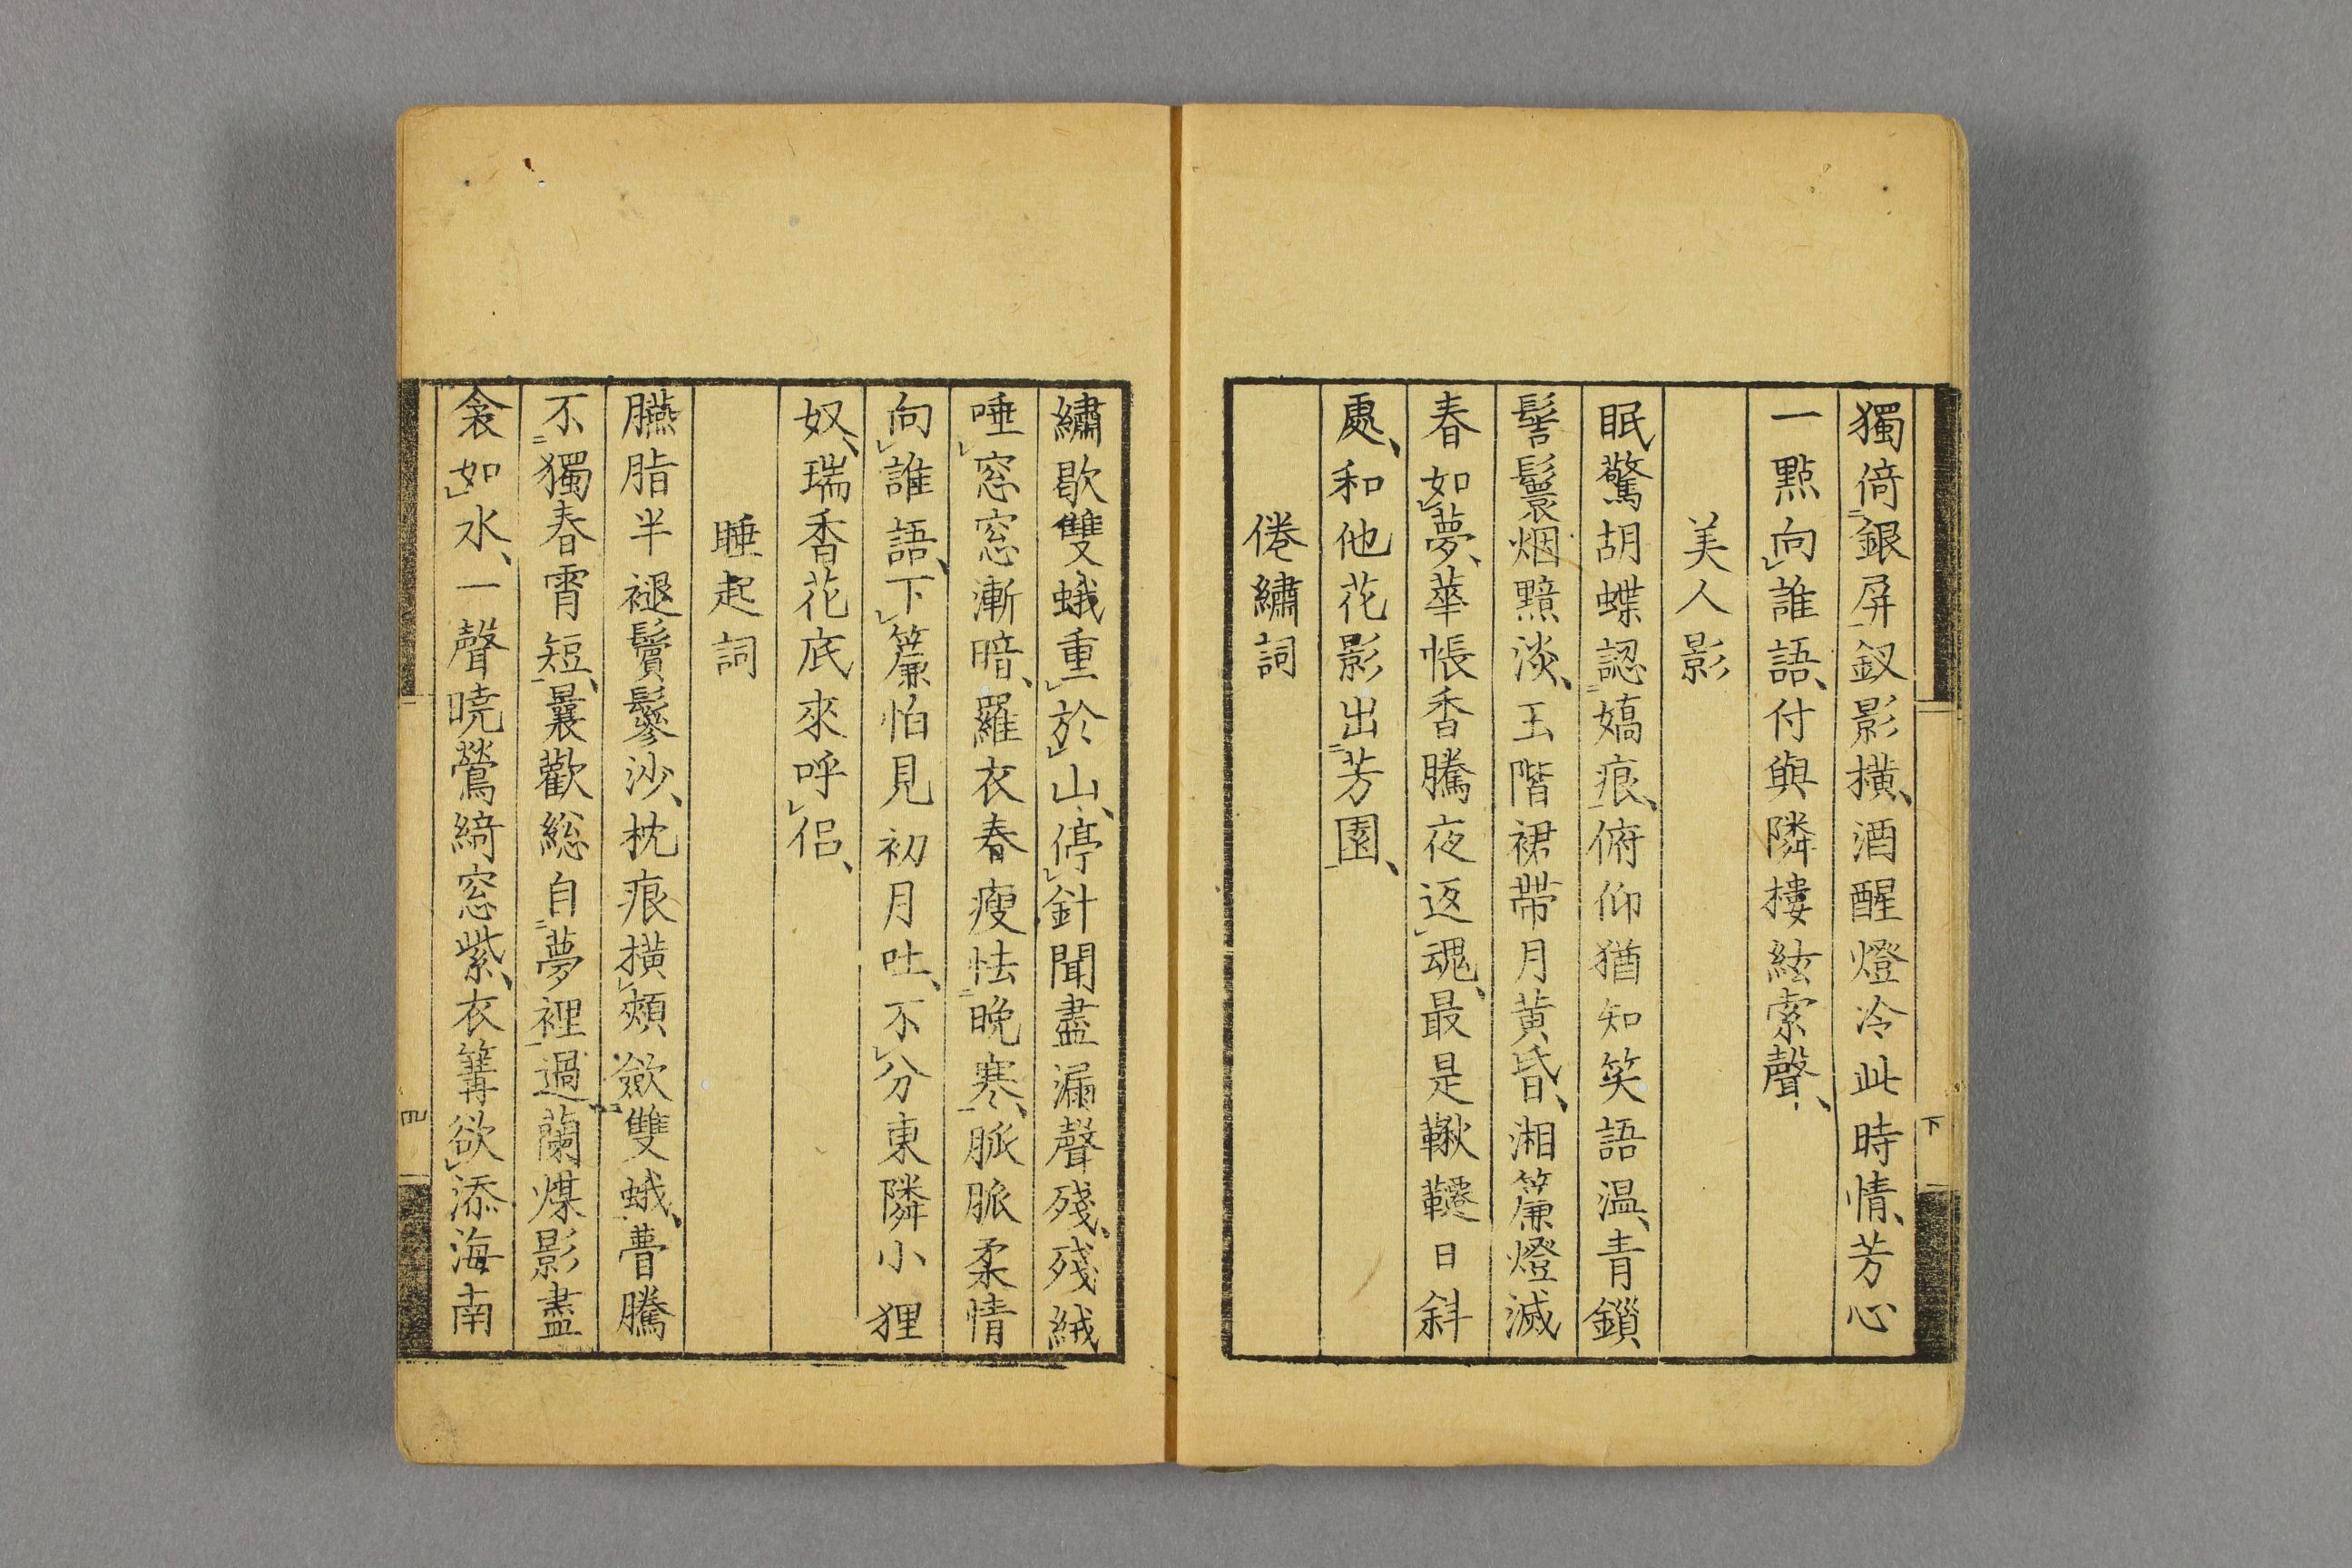 獨倚銀屏釵影橫、酒醒燈冷此時情、芳心
一點向誰語、付與隣樓絃索聲、
美人影
眠驚胡蝶認嬌痕、俯仰猶知笑語温、青鎖
髻鬟烟黯淡、玉階裙帶月黃昏、湘簾燈滅
春如夢、華帳香騰夜返魂、最是鞦韆日斜
處、和他花影出芳園、
倦繡詞
繡歇雙蛾重於山、停針聞盡漏聲殘、殘絨
唾窓窓漸暗、羅衣春瘦怯晩寒、脈脈柔情
向誰語、下簾怕見初月吐、不分東隣小狸
奴、瑞香花底來呼侶、
睡起詞
臙脂半褪鬢鬖沙、枕痕橫頰斂雙蛾、瞢騰
不獨春宵短、曩歡総自夢裡過、蘭煤影盡
衾如水、一聲曉鶯綺窓紫、衣篝欲添海南
下